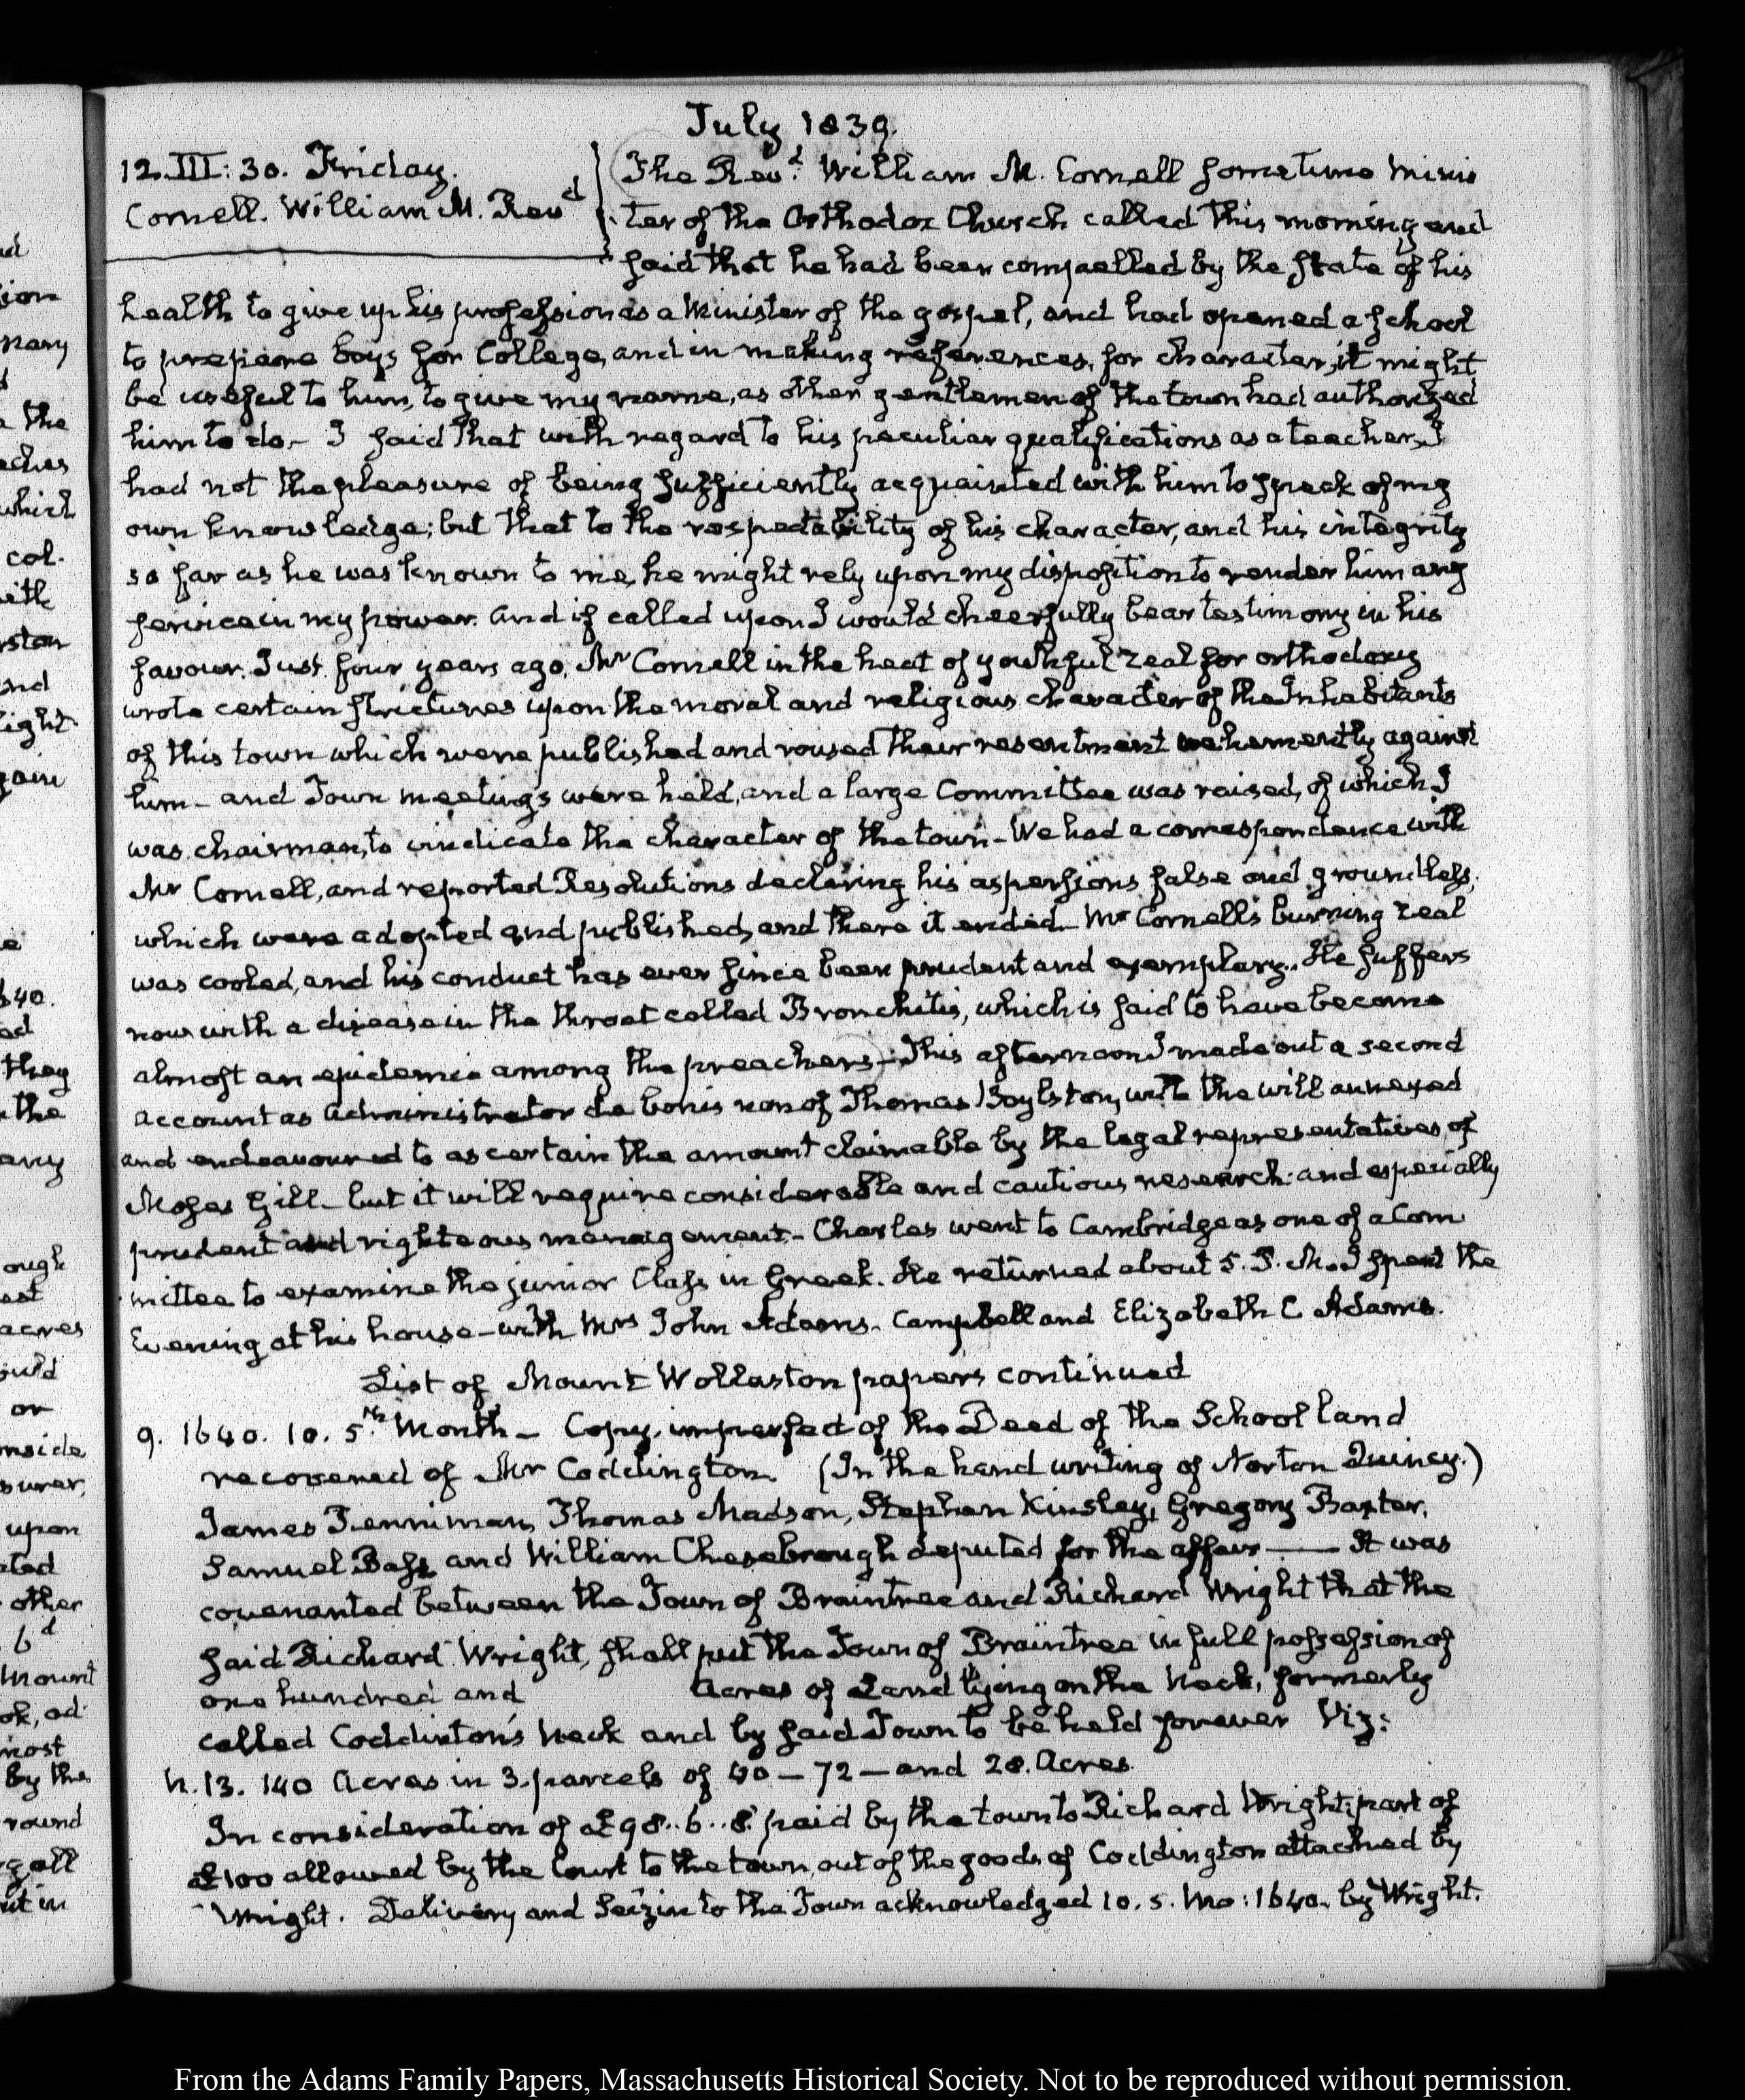 July 1839.
12. III: 30. Friday.
Cornell. William M. Revd
The Revd. William M. Cornell sometime minis
ter of the Orthodox Church called this morning and
said that he had been compelled by the state of his
health to give up his profession as a Minister of the gospel, and had opened a school
to prepare boys for College, and in making references, for character, it might
be useful to him, to give my name, as other gentlemen of the town had authorized
him to do.- I said that with regard to his peculiar qualifications as a teacher, I
had not the pleasure of being sufficiently acquainted with him to speak of my
own knowledge; but that to the respectability of his character, and his integrity
so far as he was known to me, he might rely upon my disposition to render him any
service in my power. And if called upon I would cheerfully bear testimony in his
favour. Just four years ago, Mr Cornell in the heat of youthful zeal for orthodoxy
wrote certain strictures upon the moral and religious character of the Inhabitants
of this town which were published and roused their resentment vehemently against
him- and Town meetings were held, and a large Committee was raised, of which I
was chairman, to vindicate the character of the town- We had a correspondence with
Mr Cornell, and reported Resolutions declaring his aspersions false and groundless,
which were adopted and published, and there it ended- Mr Cornell's burning zeal
was cooled, and his conduct has ever since been prudent and exemplary. He suffers
now with a disease in the throat called Bronchitis, which is said to have become
almost an epidemic among the preachers- This afternoon I made out a second
account as administrator de bonis non of Thomas Boylston, with the will annexed
and endeavoured to ascertain the amount claimable by the legal representatives of
Moses Gill- but it will require considerable and cautious research: and especially
prudent and righteous management- Charles went to Cambridge as one of a Com
mittee to examine the junior Class in Greek. He returned about 5. P.M. I spent the
Evening at his house- with Mrs John Adams. Campbell and Elizabeth C Adams.
List of Mount Wollaston papers continued
9. 1640. 10. 5th. Month- Copy, imperfect of the Deed of the School land
recovered of Mr Coddington. (In the hand writing of Norton Quincy.)
James Penniman, Thomas Madson, Stephen Kinsley, Gregory Baxter,
Samuel Bass and William Chesebrough deputed for the affair —— It was
covenanted between the Town of Braintree and Richard Wright that the
said Richard Wright, shall put the Town of Braintree in full possession of
one hundred and Acres of Land lying on the Neck, formerly
called Coddinton's Neck and by said Town to be held forever Viz:
n. 13. 140 Acres in 3. parcels of 40 – 72 – and 28. Acres.
In consideration of £98..6..8. paid by the town to Richard Wright: part of
£100 allowed by the Court to the town, out of the goods of Coddington attached by
Wright. Delivery and Seizin to the Town acknowledged 10. 5. Mo: 1640. by Wright.
nd
ion
many
d
the
which
col.
with
and
light
gain
e
1640.
ed
they
the
any
ough
est
acres
ould
or
surer,
upon
ated
other
6d
Mount
ok, ad
most
by the
round
gott
ut in
From the Adams Family Papers, Massachusetts Historical Society. Not to be reproduced without permission.